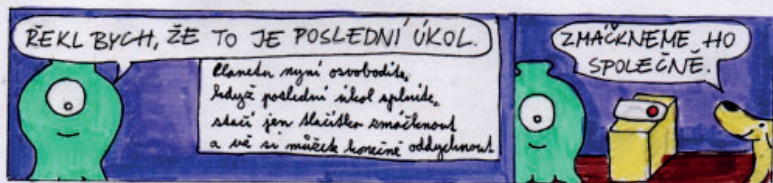 ŘEKL BYCH, ŽE TO JE POSLEDNÍ ÚKOL.
Planetu nyní osvobodíte,
když poslední úkol splníte,
stačí jen tlačítko zmáčknout
a vš si můžete konečně oddychnout
ZMÁČKNEME HO
SPOLEČNĚ.